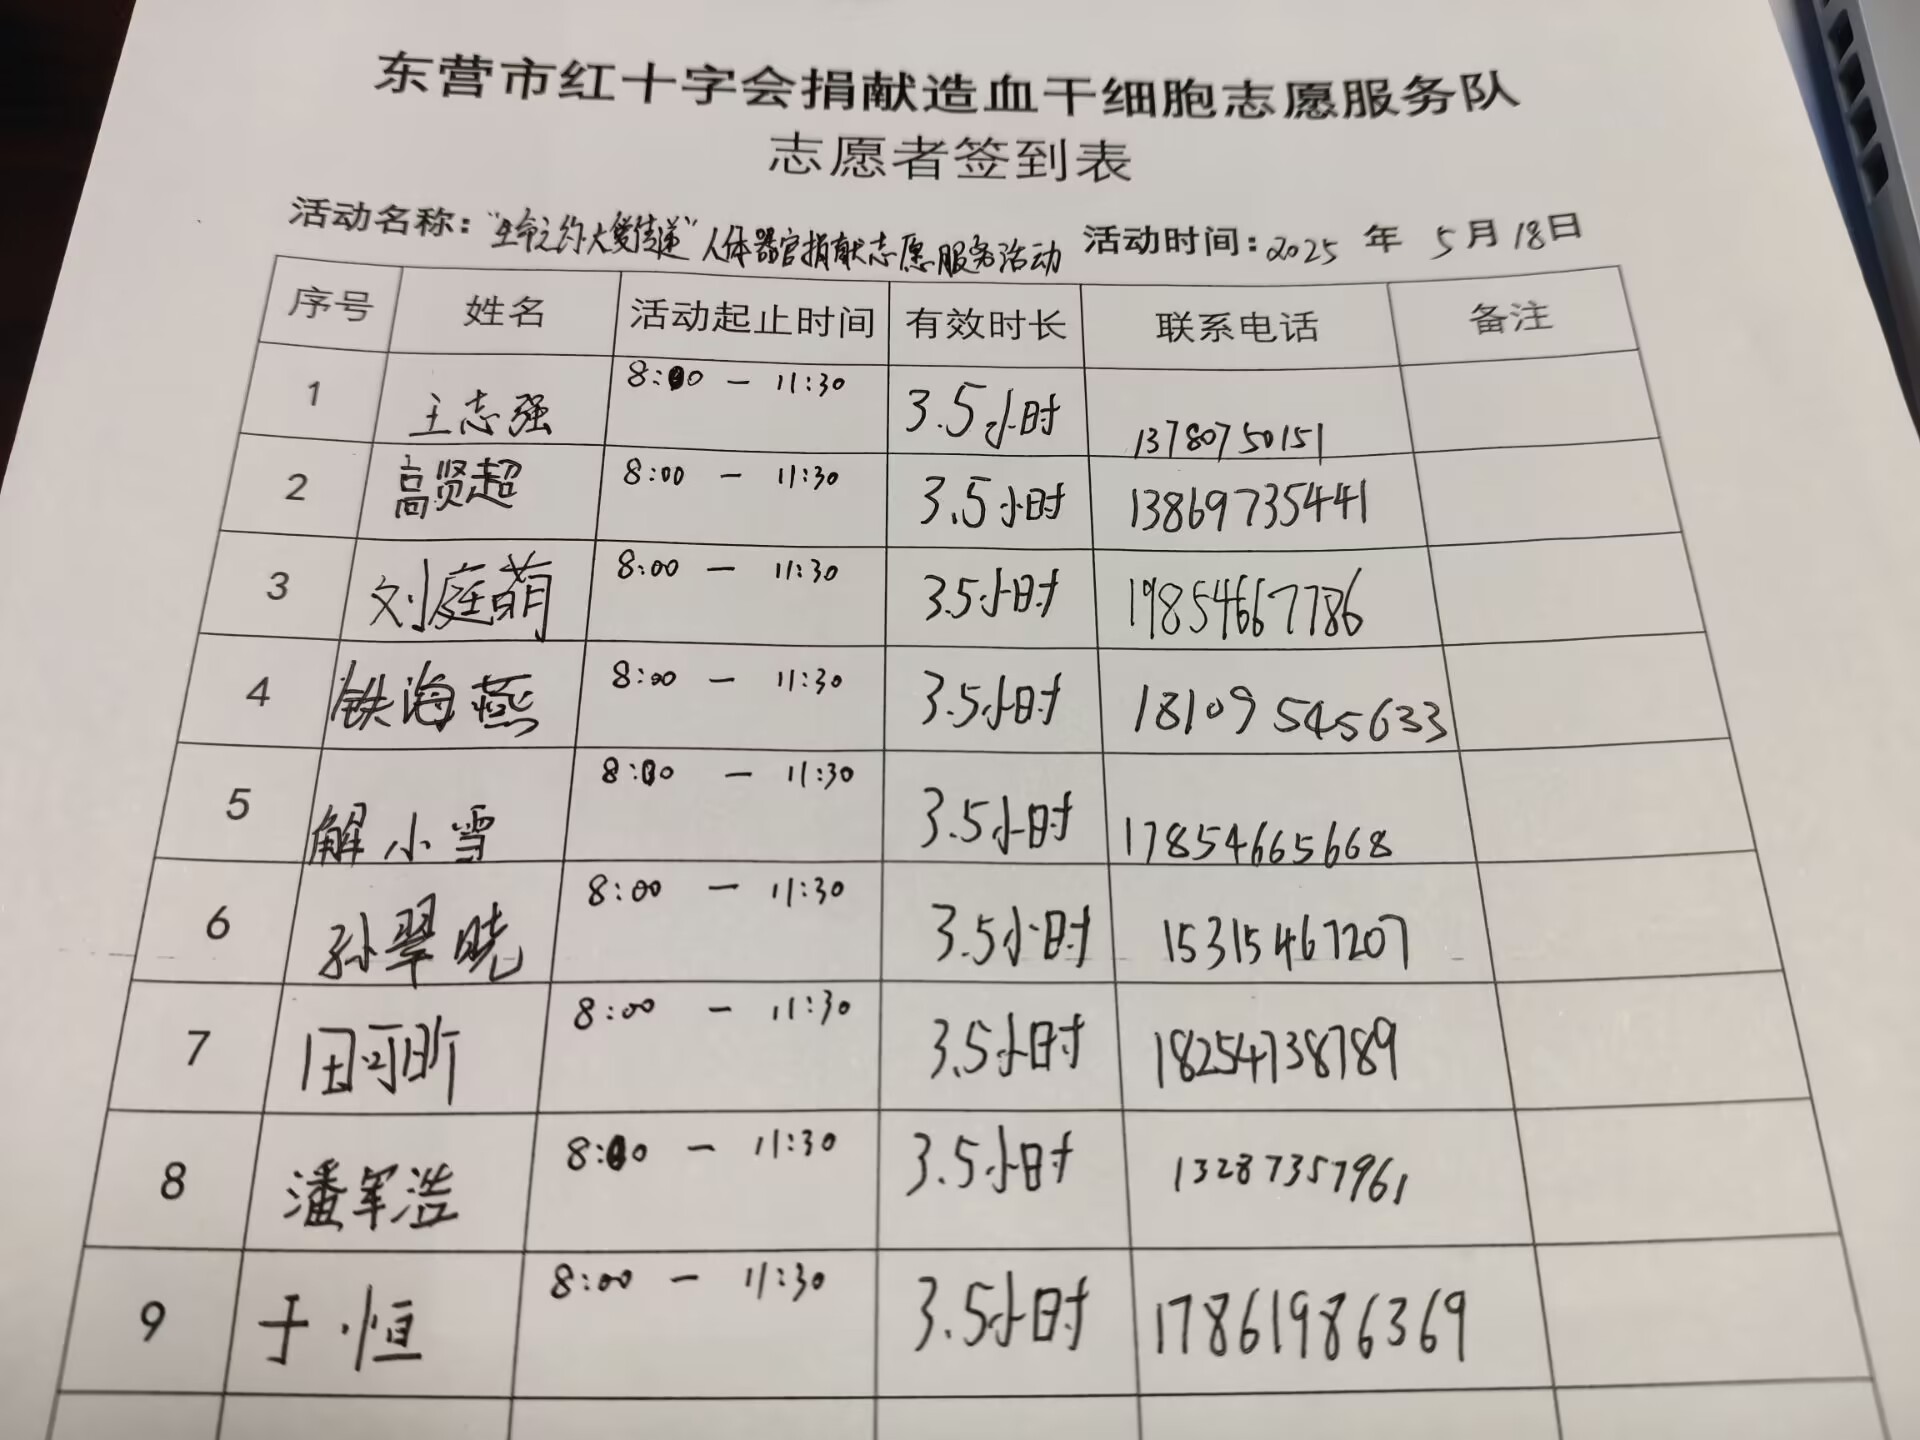 东营市红十字会捐献造血干细胞志愿服务队
志愿者签到表
活动名称：“生命之约大爱传递”人体器官捐献志愿服务活动 活动时间：2025 年 5月18日
序号 姓名 活动起止时间 有效时长 联系电话 备注
1 王志强 8:00 — 11:30 3.5小时 13780750151
2 高贤超 8:00 — 11:30 3.5小时 13869735441
3 刘庭萌 8:00 — 11:30 3.5小时 19854667786
4 铁海燕 8:00 — 11:30 3.5小时 18109545633
5 解小雪 8:00 — 11:30 3.5小时 17854665668
6 孙翠晓 8:00 — 11:30 3.5小时 15315467207
7 田可昕 8:00 — 11:30 3.5小时 18254738789
8 潘军浩 8:00 — 11:30 3.5小时 13287357961
9 于恒 8:00 — 11:30 3.5小时 17861986369